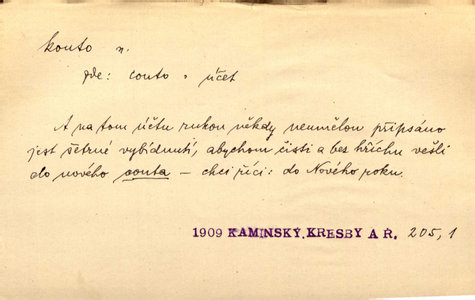 konto n.
pde: conto = účet
A na tom účtu rukou někdy neumělou připsáno
jest šetrné vybídnutí, abychom čisti a bez hříchu vešli
do nového conta – chci říci: do Nového roku.
1909 KAMINSKÝ, KRESBY A Ř. 205,1